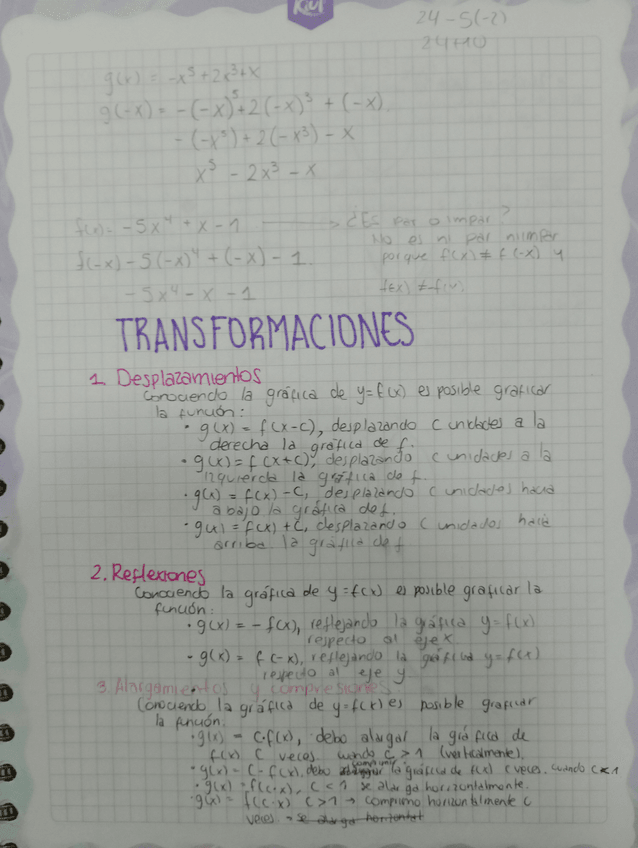 24-5(-2)
24+10
g(x) = -x⁵+2x³+x
g(-x) = -(-x)⁵+2(-x)³ + (-x).
-(-x⁵)+2(-x³)-x
x⁵ - 2x³ - x
f(x) = -5x⁴ + x - 1 → ¿Es par o impar?
No es ni par ni impar
f(-x) - 5(-x)⁴ + (-x) - 1.
porque f(x) ≠ f(-x) y
-5x⁴ - x - 1
f(x) ≠ -f(x).
TRANSFORMACIONES
1. Desplazamientos
Conociendo la gráfica de y=f(x) es posible graficar
la función:
• g(x) = f(x-c), desplazando c unidades a la
derecha la gráfica de f.
• g(x) = f(x+c), desplazando c unidades a la
izquierda la gráfica de f.
• g(x) = f(x) - C, desplazando c unidades hacia
abajo la gráfica de f.
• g(x) = f(x) + C, desplazando c unidades hacia
arriba la gráfica de f
2. Reflexiones
Conociendo la gráfica de y = f(x) es posible graficar la
función:
• g(x) = -f(x), reflejando la gráfica y=f(x)
respecto al eje x
• g(x) = f(-x), reflejando la gráfica y=f(x)
respecto al eje y.
3. Alargamientos y compresiones
Conociendo la gráfica de y=f(x) es posible graficar
la función.
• g(x) = C·f(x), debo alargar la gráfica de
f(x) C veces. cuando C > 1 (verticalmente).
• g(x) = C-f(x), debo comprimir la gráfica de f(x) c veces. cuando C < 1
• g(x) = f(c·x), C < 1 se alarga horizontalmente.
• g(x) = f(c·x) C > 1 → comprimo horizontalmente c
veces. → se alarga horizontal